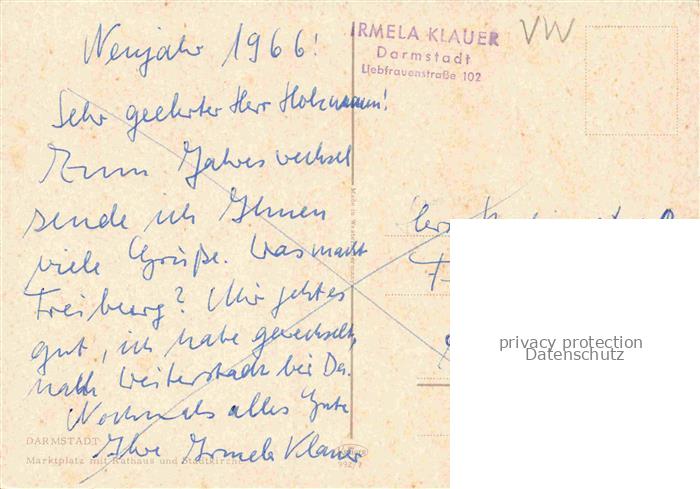 Neujahr 1966!
Sehr geehrter Herr Holzmann!
Zum Jahreswechsel
sende ich Ihnen
viele Grüße. Was macht
Freiburg? Mir geht es
gut, ich habe gewechselt,
nach Weiterstadt bei Da.
Nochmals alles Gute
Ihre Irmela Klauer
DARMSTADT
Marktplatz mit Rathaus und Stadtkirche
IRMELA KLAUER
Darmstadt
Liebfrauenstraße 102
VW
992/7
privacy protection
Datenschutz